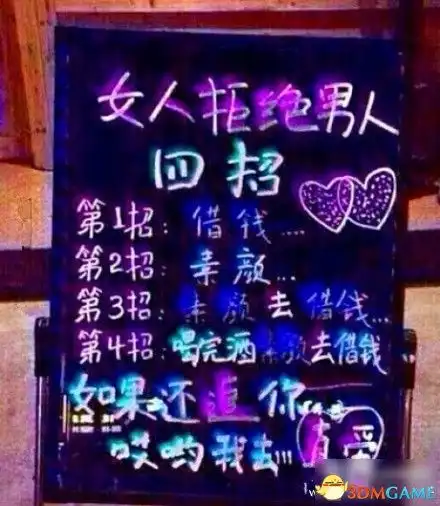 女人拒绝男人
四招
第1招：借钱....
第2招：素颜...
第3招：素颜去借钱...
第4招：喝完酒素颜去借钱...
如果还追你
哎哟我去...真爱
3DMGAME